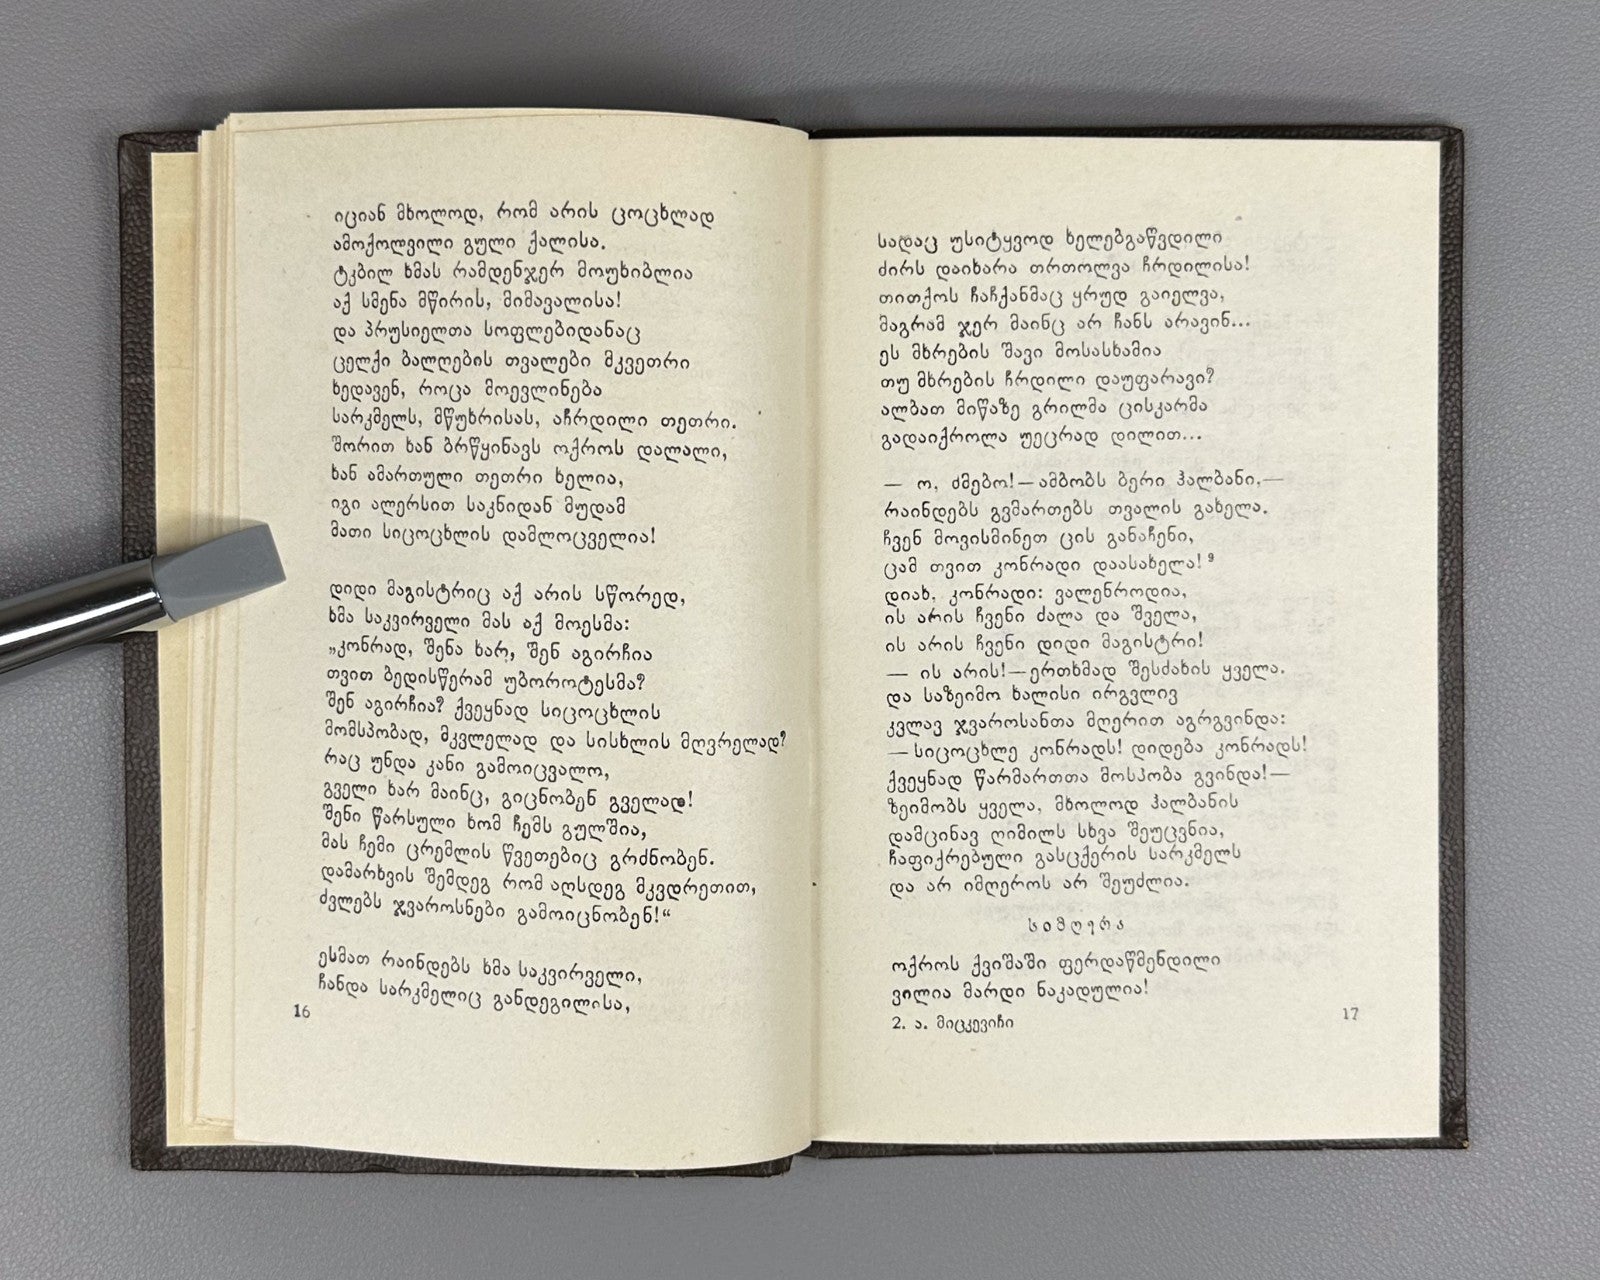 იციან მხოლოდ, რომ არის ცოცხლად
ამოქოლვილი გული ქალისა.
ტკბილ ხმას რამდენჯერ მოუხიბლია
აქ სმენა მწირის, მიმავალისა!
და პრუსიელთა სოფლებიდანაც
ცელქი ბალღების თვალები მკვეთრი
ხედავენ, როცა მოევლინება
სარკმელს, მწუხრისას, აჩრდილი თეთრი.
შორით ხან ბრწყინავს ოქროს დალალი,
ხან ამართული თეთრი ხელია,
იგი ალერსით საკნიდან მუდამ
მათი სიცოცხლის დამლოცველია!
დიდი მაგისტრიც აქ არის სწორედ,
ხმა საკვირველი მას აქ მოესმა:
„კონრად, შენა ხარ, შენ აგირჩია
თვით ბედისწერამ უბოროტესმა?
შენ აგირჩია? ქვეყნად სიცოცხლის
მომსპობად, მკვლელად და სისხლის მღვრელად?
რაც უნდა კანი გამოიცვალო,
გველი ხარ მაინც, გიცნობენ გველად!
შენი წარსული ხომ ჩემს გულშია,
მას ჩემი ცრემლის წვეთებიც გრძნობენ.
დამარხვის შემდეგ რომ აღსდეგ მკვდრეთით,
ძვლებს ჯვაროსნები გამოიცნობენ!“
ესმათ რაინდებს ხმა საკვირველი,
ჩანდა სარკმელიც განდეგილისა,
16
სადაც უსიტყვოდ ხელებგაწვდილი
ძირს დაიხარა თრთოლვა ჩრდილისა!
თითქოს ჩაჩქანმაც ყრუდ გაიელვა,
მაგრამ ჯერ მაინც არ ჩანს არავინ...
ეს მხრების შავი მოსასხამია
თუ მხრების ჩრდილი დაუფარავი?
ალბათ მიწაზე გრილმა ცისკარმა
გადაიქროლა უეცრად დილით...
— ო, ძმებო! — ამბობს ბერი ჰალბანი, —
რაინდებს გვმართებს თვალის გახელა.
ჩვენ მოვისმინეთ ცის განაჩენი,
ცამ თვით კონრადი დაასახელა! ⁹
დიახ, კონრადი: ვალენროდია,
ის არის ჩვენი ძალა და შველა,
ის არის ჩვენი დიდი მაგისტრი!
— ის არის! — ერთხმად შესძახის ყველა.
და საზეიმო ხალისი ირგვლივ
კვლავ ჯვაროსანთა მღერით აგრგვინდა:
— სიცოცხლე კონრადს! დიდება კონრადს!
ქვეყნად წარმართთა მოსპობა გვინდა! —
ზეიმობს ყველა, მხოლოდ ჰალბანის
დამცინავ ღიმილს სხვა შეუცვნია,
ჩაფიქრებული გასცქერის სარკმელს
და არ იმღეროს არ შეუძლია.
სიმღერა
ოქროს ქვიშაში ფერდაწმენდილი
ვილია მარდი ნაკადულია!
2. ა. მიცკევიჩი
17